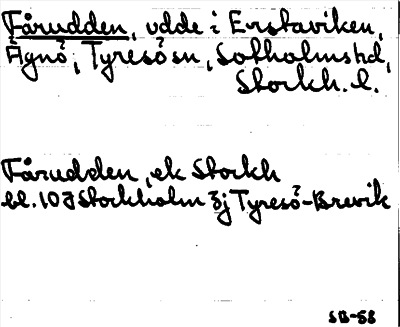 Fårudden, udde i Erstaviken,
Ägnö, Tyresö sn, Sotholms hd,
Stockh. l.
Fårudden, ek Stockh
bl. 10J Stockholm 3j Tyresö-Brevik
SB-58